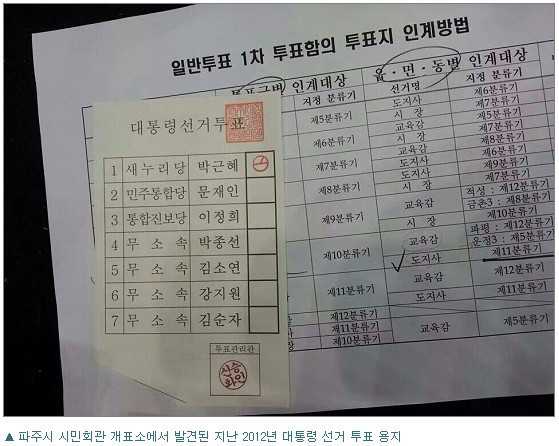 일반투표 1차 투표함의 투표지 인계방법
인계대상
읍·면·동별 인계대상
지정 분류기
선거명
지정 분류기
제5분류기
제6분류기
제7분류기
제8분류기
제9분류기
제10분류기
제11분류기
제12분류기
제11분류기
제10분류기
도지사
시 장
교육감
도지사
시 장
교육감
시 장
교육감
도지사
교육감
도지사
교육감
제6분류기
제7분류기
제5분류기
제7분류기
제8분류기
제6분류기
제9분류기
제7분류기
적성 : 제12분류기
금촌3 : 제8분류기
제10분류기
파평 : 제12분류기
운정3 : 제5분류기
제11분류기
제12분류기
제11분류기
제5분류기
대통령선거투표
1 새누리당 박근혜
2 민주통합당 문재인
3 통합진보당 이정희
4 무소속 박종선
5 무소속 김소연
6 무소속 강지원
7 무소속 김순자
투표관리관
▲ 파주시 시민회관 개표소에서 발견된 지난 2012년 대통령 선거 투표 용지